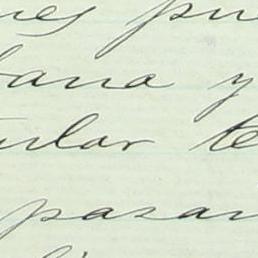 nes pu
bana y
ular te
pasar